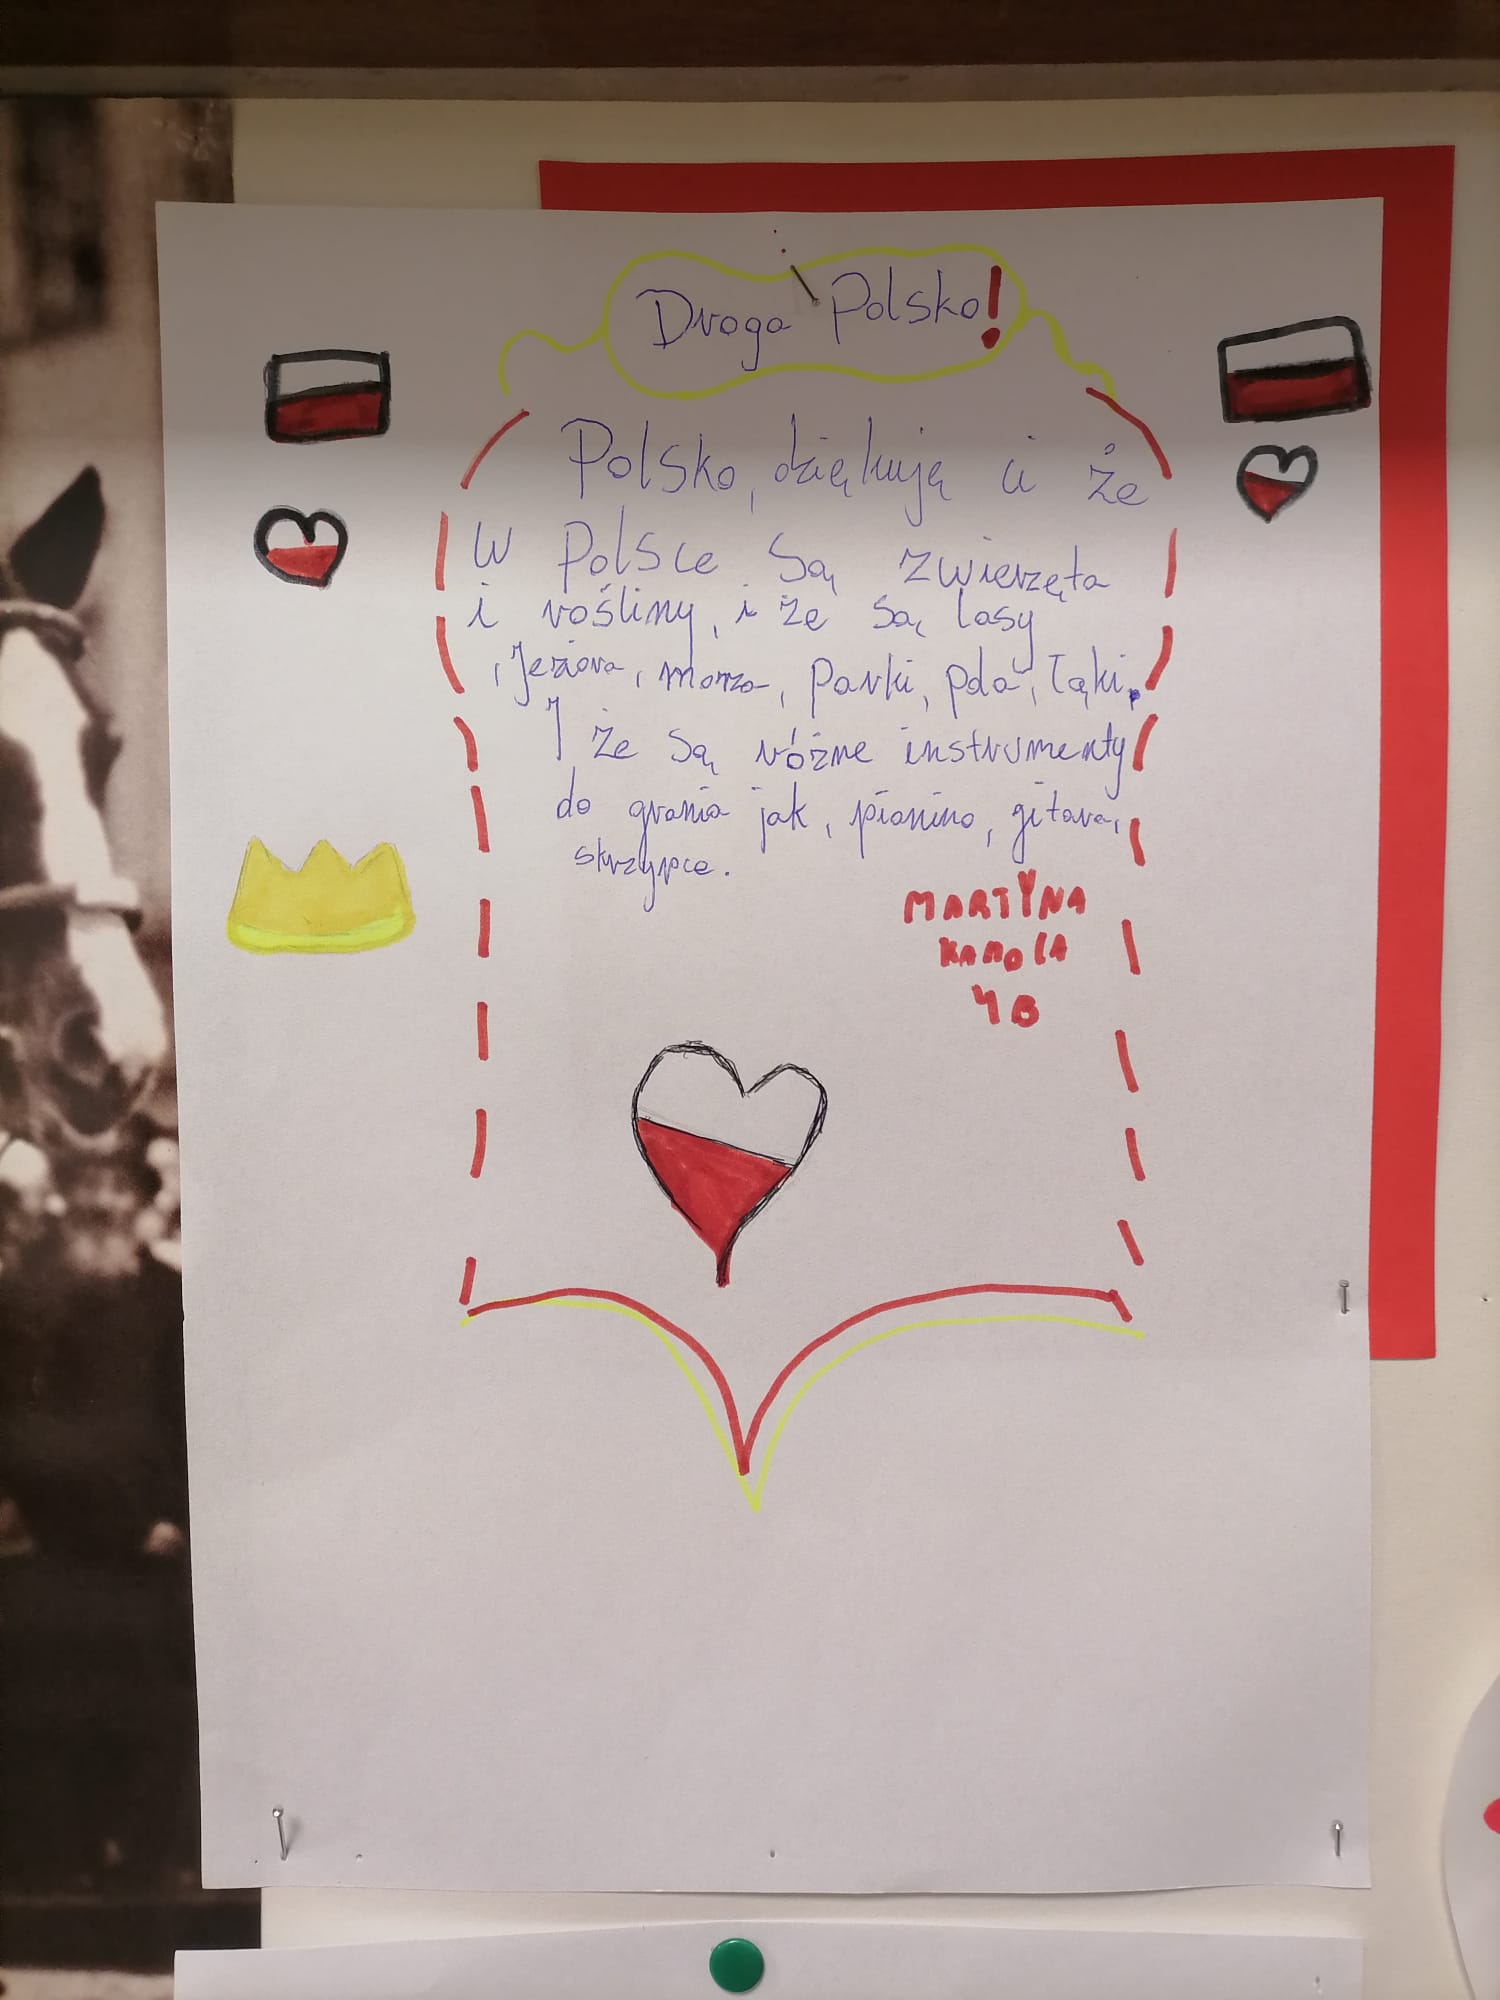 Droga Polsko!
Polsko, dziękuję ci że
w Polsce są zwierzęta
i rośliny, i że są lasy
, Jeziora, morza, parki, pola, łąki.
I że są różne instrumenty
do grania jak, pianino, gitara,
skrzypce.
MARTYNA
4B